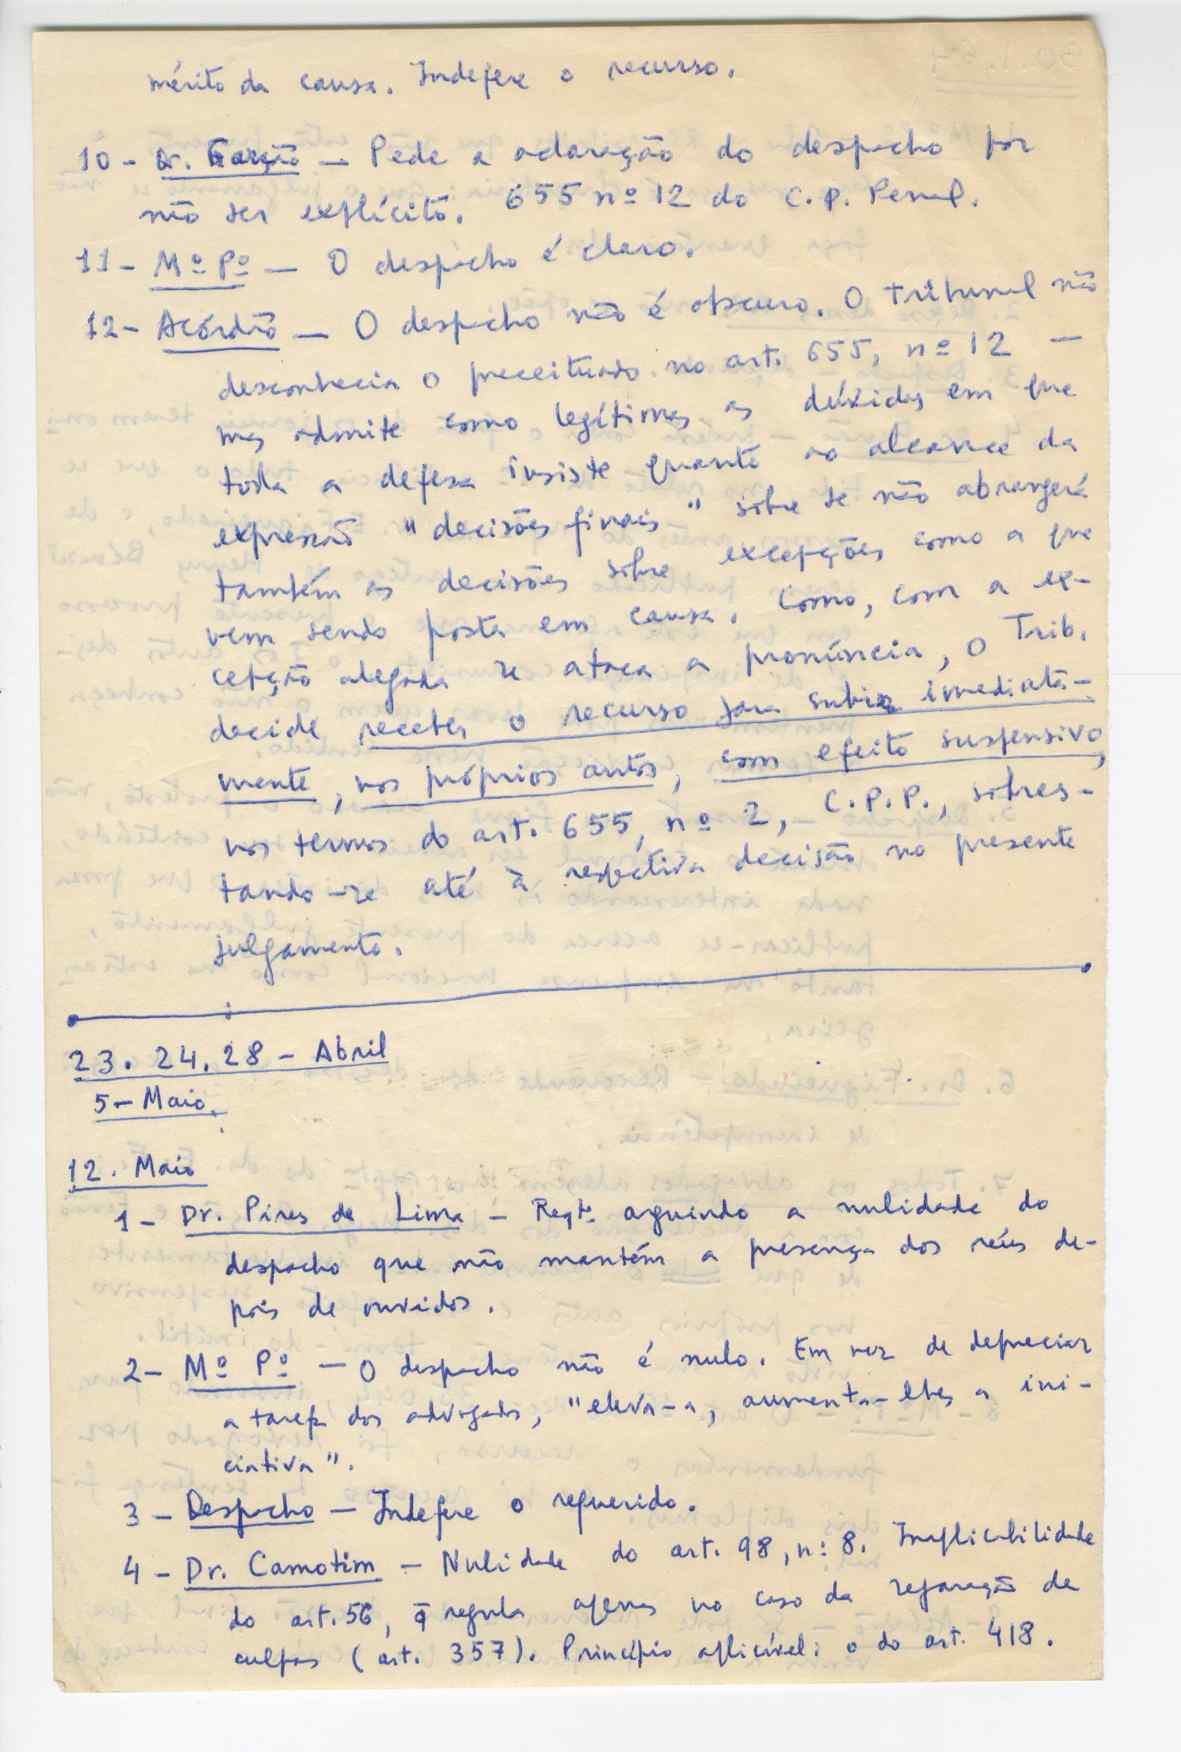 mérito da causa. Indefere o recurso.
10 - Dr. Garção — Pede a aclaração do despacho por
não ser explícito. 655 nº 12 do C. P. Penal.
11 - Mº Pº — O despacho é claro.
12 - Acórdão — O despacho não é obscuro. O Tribunal não
desconhecia o preceituado no art. 655, nº 12 —
mas admite como legítimas as dúvidas em que
toda a defesa insiste quanto ao alcance da
expressão "decisões finais" sobre se não abrangerá
também as decisões sobre excepções como a que
vem sendo posta em causa. Como, com a ex-
cepção alegada se ataca a pronúncia, o Trib.
decide receber o recurso para subir imediata-
mente, nos próprios autos, com efeito suspensivo,
nos termos do art. 655, nº 2, C.P.P., sobres-
tando-se até à respectiva decisão no presente
julgamento.
23. 24. 28 - Abril
5 - Maio.
12. Maio
1 - Dr. Pires de Lima - Reqtº arguindo a nulidade do
despacho que não mantém a presença dos réus de-
pois de ouvidos.
2 - Mº Pº — O despacho não é nulo. Em vez de depreciar
a tarefa dos advogados, "eleva-a, aumenta-lhes a ini-
ciativa".
3 - Despacho — Indefere o requerido.
4 - Dr. Camotim — Nulidade do art. 98, nº 8. Inaplicabilidade
do art. 56, q̄ regula apenas no caso da separação de
culpas (art. 357). Princípio aplicável: o do art. 418.